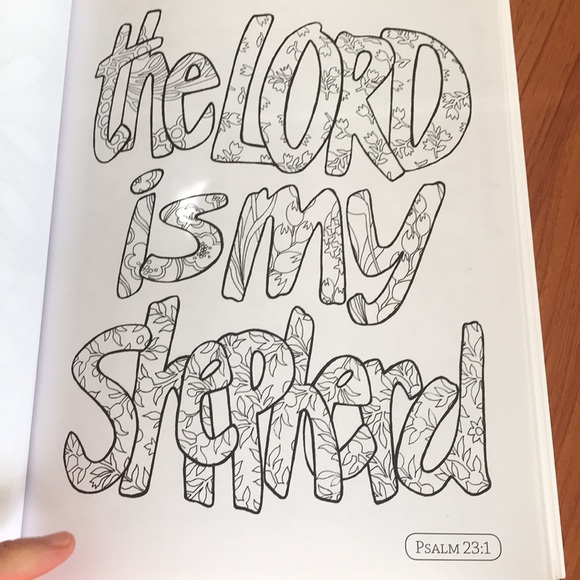 the LORD
is my
Shepherd
PSALM 23:1